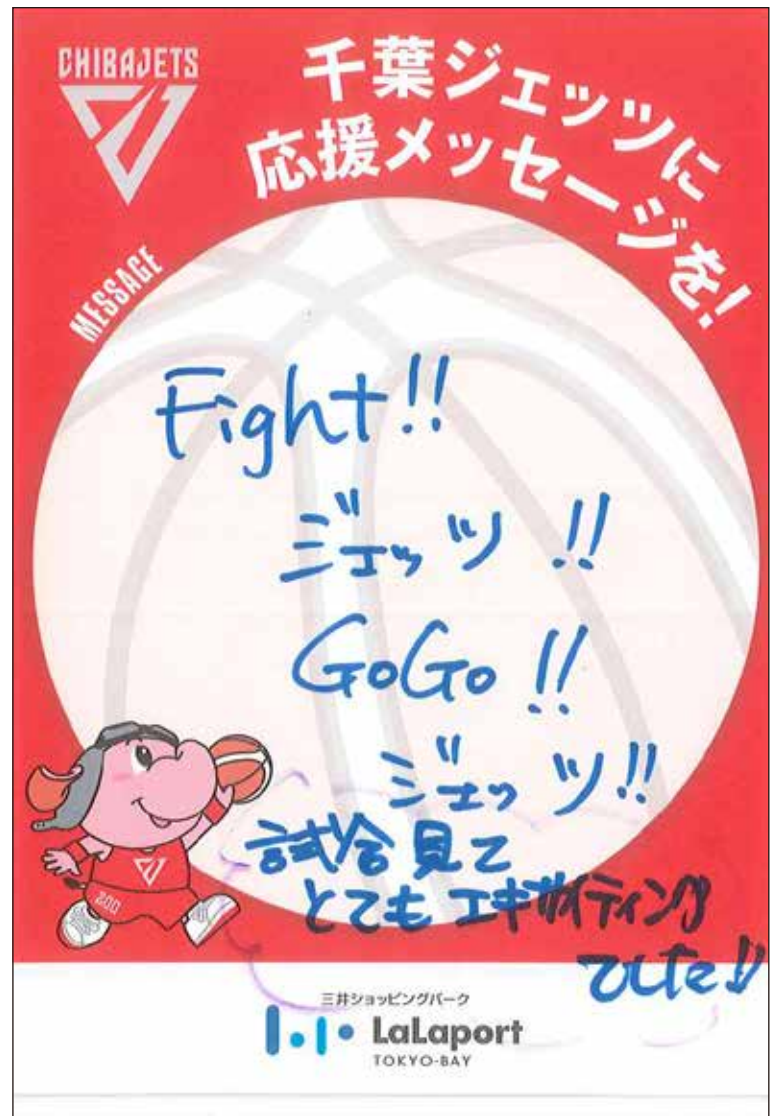 CHIBAJETS
千葉ジェッツに
応援メッセージを!
MESSAGE
Fight!!
ジェッツ!!
GoGo!!
ジェッツ!!
試合見て
とても エキサイティング
でした!!
200
三井ショッピングパーク
LaLaport
TOKYO-BAY